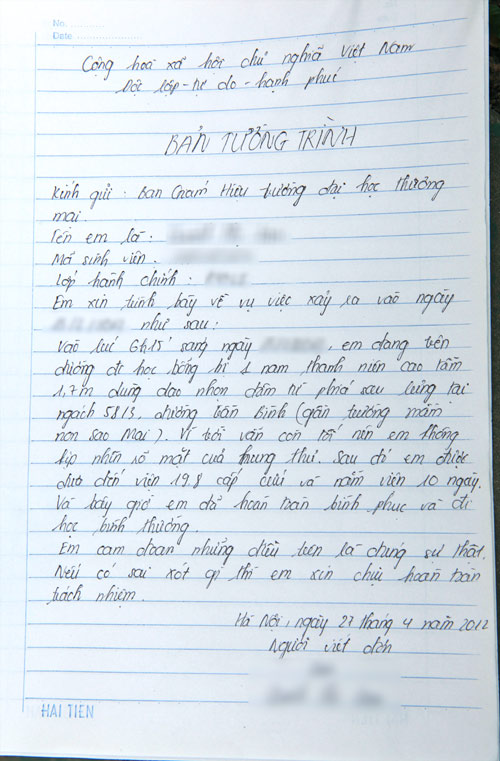 No. ....................
Date ....................
Cộng hoà xã hội chủ nghĩa Việt Nam
Độc lập - tự do - hạnh phúc
BẢN TƯỜNG TRÌNH
Kính gửi : Ban Giám Hiệu trường đại học thương
mại.
Tên em là :
Mã sinh viên :
Lớp hành chính :
Em xin trình bày về vụ việc xảy ra vào ngày
như sau :
Vào lúc 6h15' sáng ngày , em đang trên
đường đi học bỗng bị 1 nam thanh niên cao tầm
1,7m dùng dao nhọn đâm từ phía sau lưng tại
ngách 58/3, đường Trần Bình (gần trường mầm
non Sao Mai). Vì trời vẫn còn tối nên em không
kịp nhìn rõ mặt của hung thủ. Sau đó em được
đưa đến viện 198 cấp cứu và nằm viện 10 ngày.
Và bây giờ em đã hoàn toàn bình phục và đi
học bình thường.
Em cam đoan những điều trên là đúng sự thật.
Nếu có sai xót gì thì em xin chịu hoàn toàn
trách nhiệm.
Hà Nội, ngày 27 tháng 4 năm 2012
Người viết đơn
HẢI TIẾN